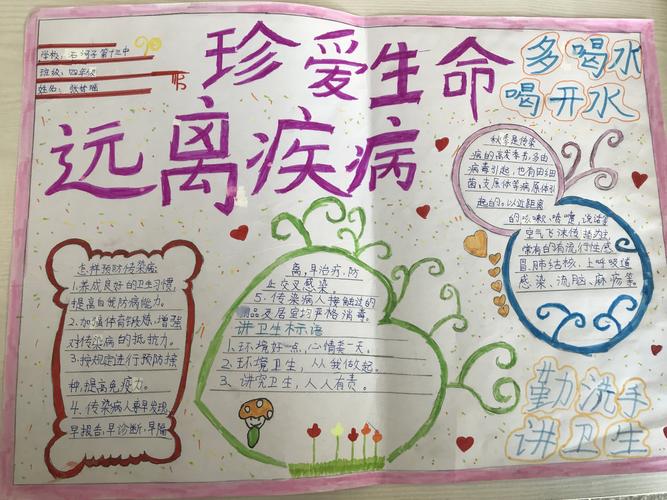 学校:石河子第十三中
班级:四年级
姓名:
珍爱生命
远离疾病
多喝水
喝开水
秋季是传染
病的高发季节,多由
病毒引起,也有由细
菌,支原体等病原体引
起的。以近距离
的咳嗽,喷嚏,说话等
空气飞沫传播为主
常有的有流行性感
冒,肺结核,上呼吸道
感染,流脑,麻疹等。
怎样预防传染病:
1.养成良好的卫生习惯,
提高自我防病能力。
2.加强体育锻炼,增强
对传染病的抵抗力。
3.按规定进行预防接
种,提高免疫力。
4.传染病人要早发现,
早报告,早诊断,早隔
离,早治疗,防
止交叉感染。
5.传染病人接触过的
品及居室均严格消毒。
讲卫生标语
1、环境好一点,心情美一天。
2、环境卫生,从我做起。
3、讲究卫生,人人有责。
勤洗手
讲卫生